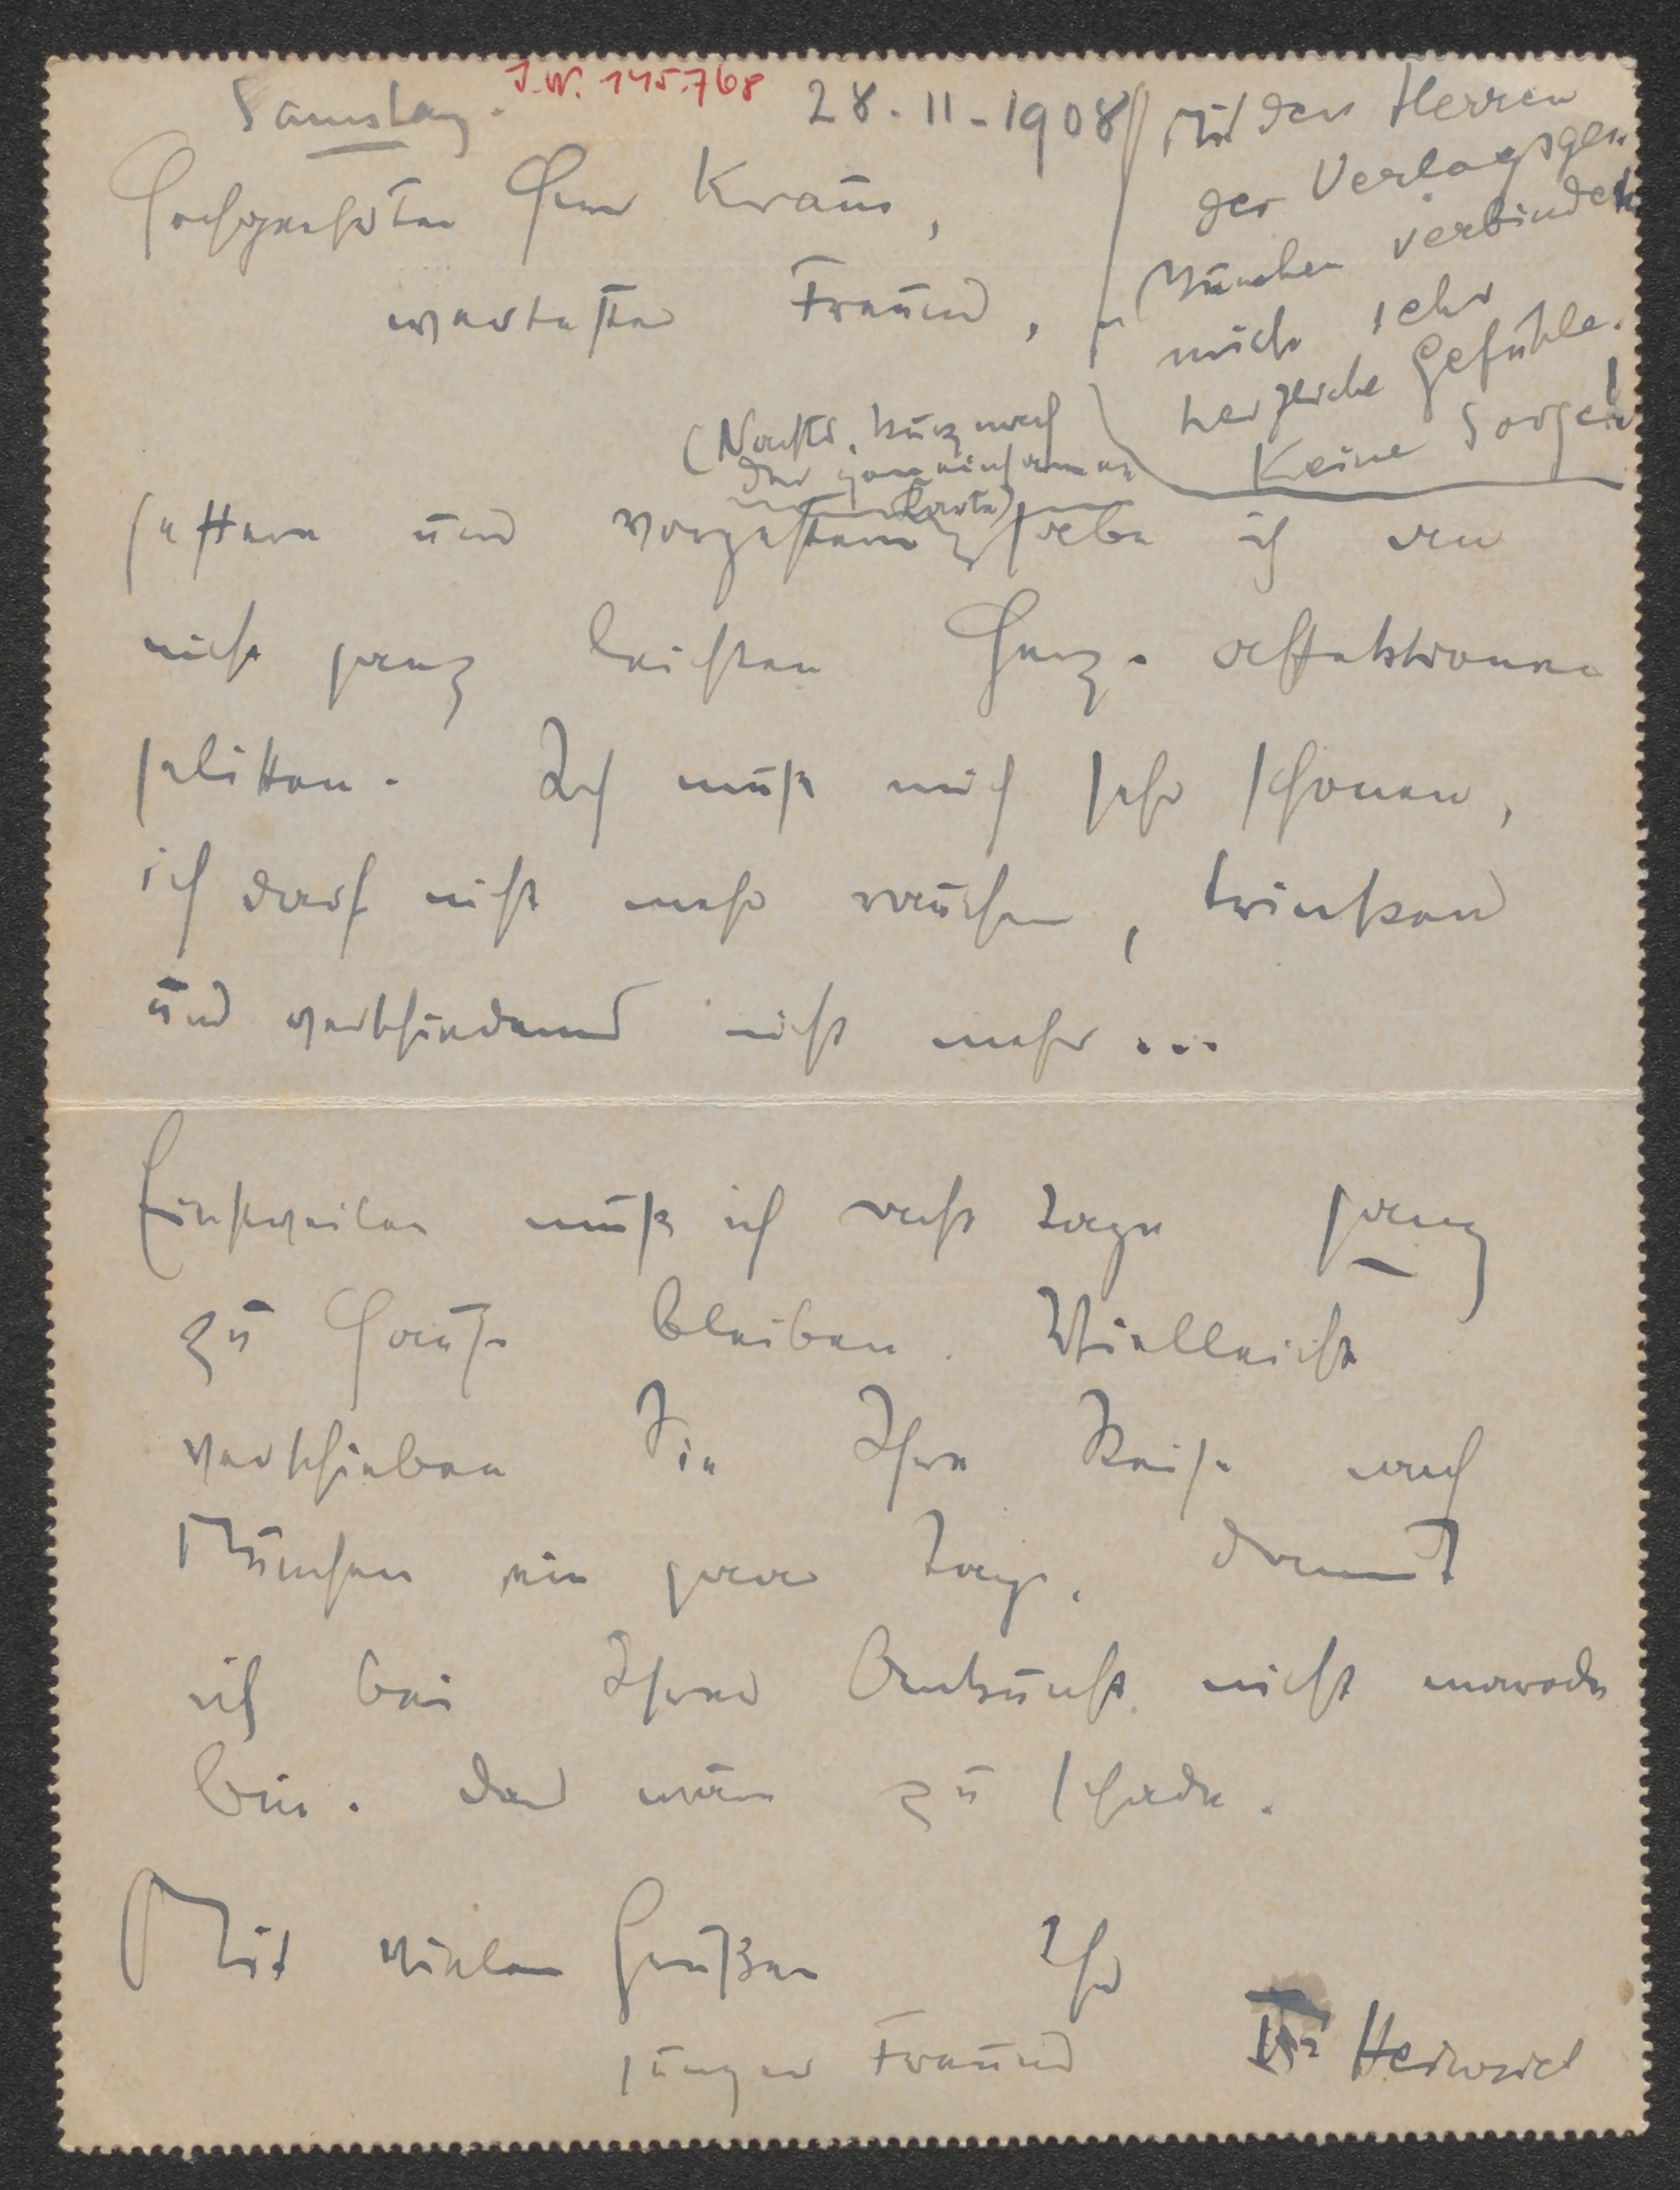 Samstag.
J.N. 145.768
28.11.1908
Hochgeehrter Herr Kraus,
wertester Freund,
Mit den Herren
der Verlagsges.
München verbinden
mich sehr
herzliche Gefühle.
Keine Sorge!
(Nachts, kurz nach
der gemeinsamen
Karte)
gestern und vorgestern habe ich an
nicht ganz leichten Herz-affektionen
gelitten. Ich muß mich sehr schonen,
ich darf nicht mehr rauchen, trinken
und verschiedenes nicht mehr...
Einstweilen muß ich acht Tage ganz
zu Hause bleiben. Vielleicht
verschieben Sie Ihre Reise nach
München ein paar Tage, damit
ich bei Ihrer Ankunft nicht marode
bin. Das wäre zu schade.
Mit vielen Grüßen Ihr
junger Freund